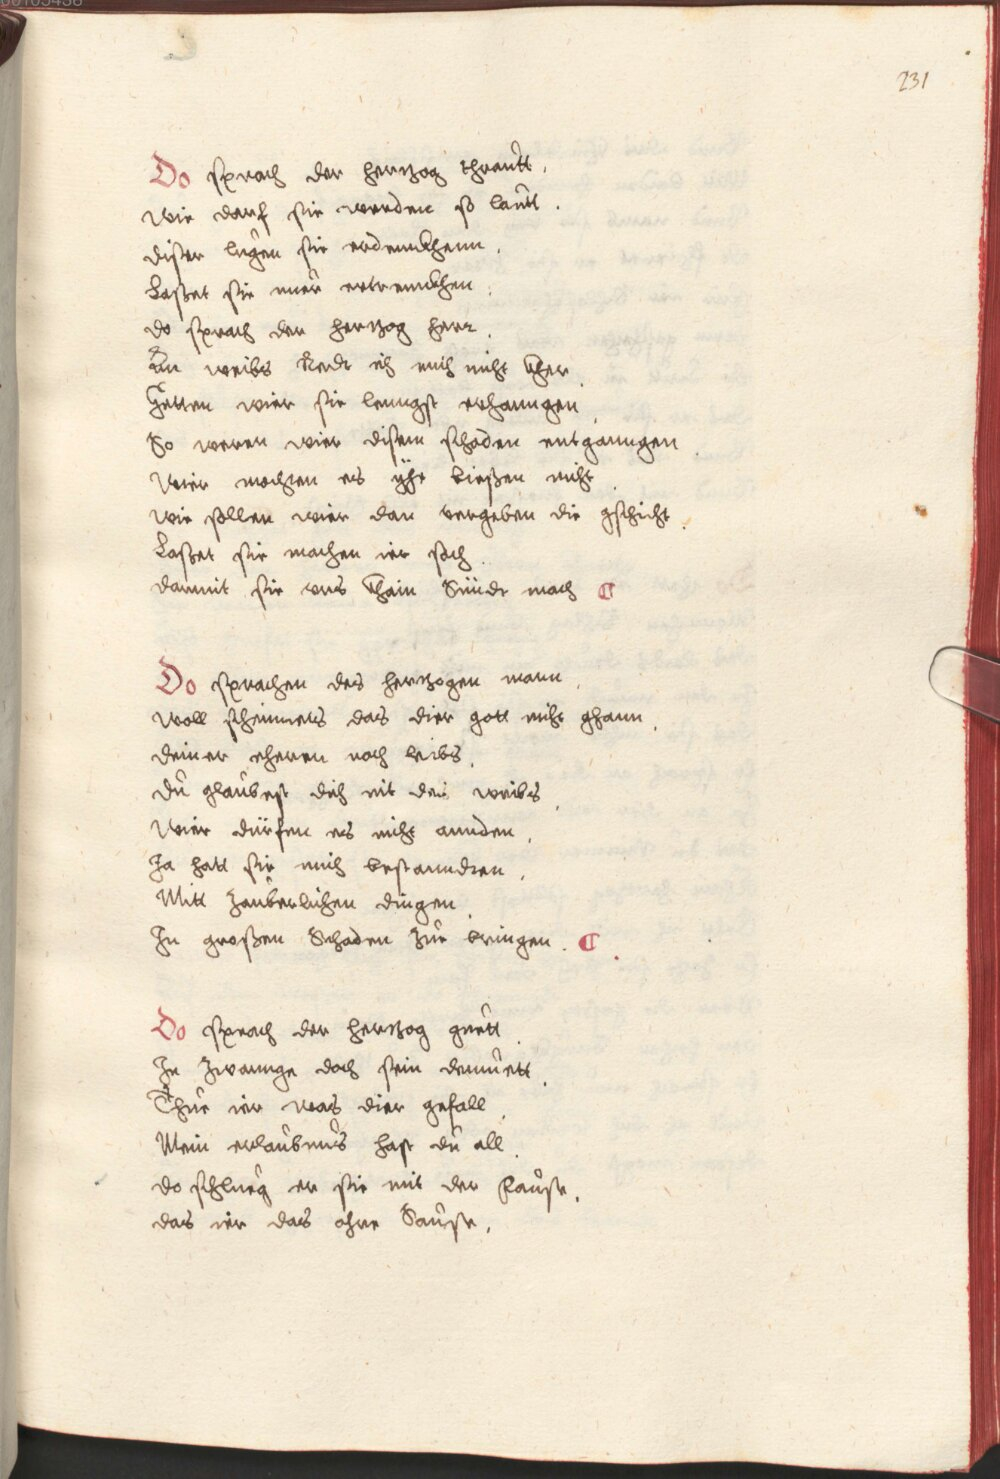 231
Do sprach der hertzog thrautt.
wie darf sie werden so lautt.
diser lugen sie erdennckhenn.
Laßet sie mier ertrennckhen.
do sprach der hertzog herr.
An weibs Redt ich mich nicht kher.
Hetten wier sie lenngst erhanngen.
So weren wier disem schaden entganngen.
Wier mochten es yhe bießen nicht.
wie sollen wier dan vergeben die gschicht.
Laßet sie machen ier sach.
damit sie vns khain Sünde mach
Do sprachen des hertzogen mann.
woll scheinnets das dier gott nicht ghann.
deiner eheren noch leibs.
du glaubest dich nit des weibs.
Wier dürfen es nicht annden.
Ja hatt sie mich bestanndten.
Mitt zauberlichen dingen.
In großen Schaden zue bringen.
Do sprach der hertzog guett.
In zwannge doch sein demuett.
Thue ier was dier gefall.
Mein erlaubnus hast du all.
do schlueg er sie mit der Fauste.
das ier das ohre Sauste.